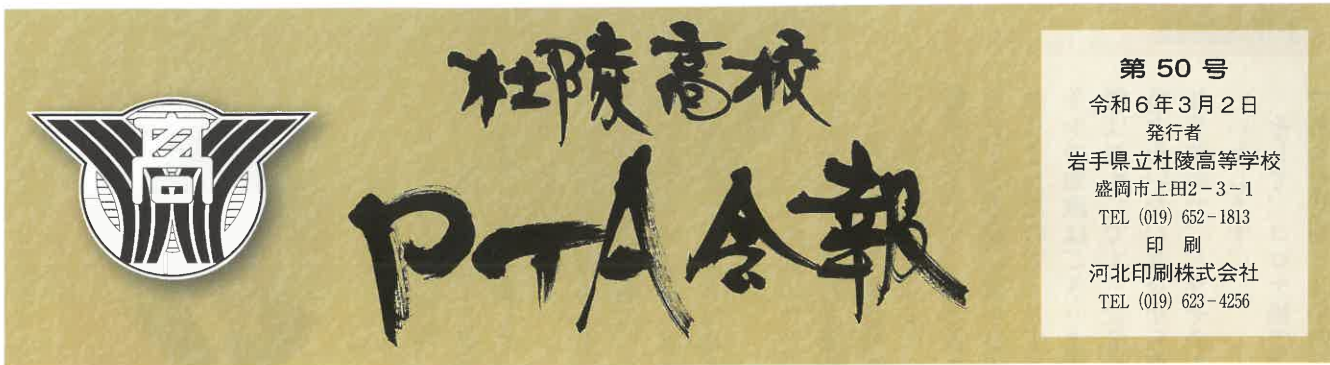 杜陵高校
PTA会報
第 50 号
令和6年3月2日
発行者
岩手県立杜陵高等学校
盛岡市上田2-3-1
TEL (019) 652-1813
印 刷
河北印刷株式会社
TEL (019) 623-4256